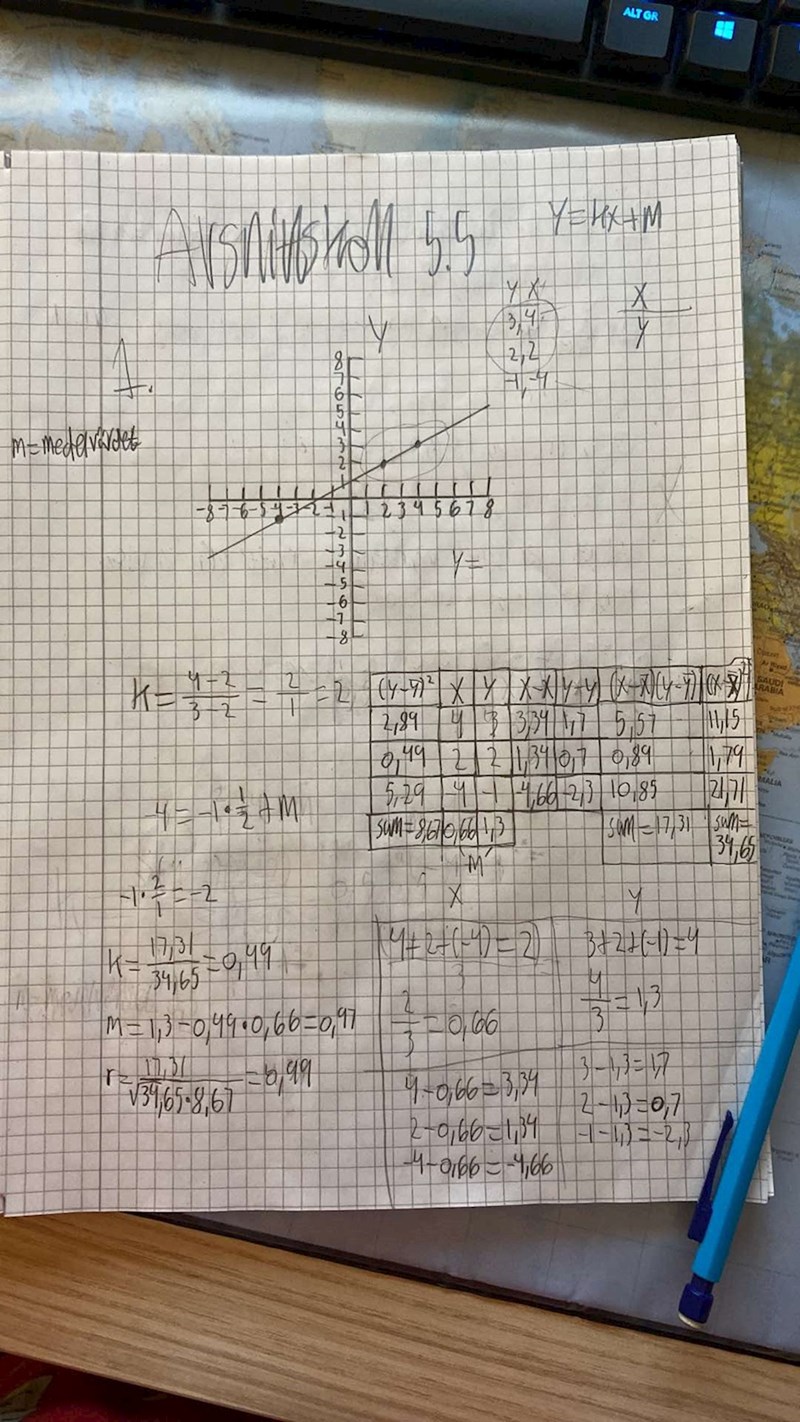 ALT GR
Avsnittskoll 5.5
Y=kx+M
Y X
3,4
2,2
-1,-4
X
Y
1.
m=medelvärdet
Y
8
7
6
5
4
3
2
1
-8 -7 -6 -5 -4 -3 -2 -1 1 2 3 4 5 6 7 8
-1
-2
-3
-4
-5
-6
-7
-8
Y=
K = 4-2/3-2 = 2/1 = 2
(y-ȳ)² X Y X-x̄ y-ȳ (x-x̄)(y-ȳ) (x-x̄)²
2,89 4 3 3,34 1,7 5,57 11,15
0,49 2 2 1,34 0,7 0,89 1,79
5,29 -4 -1 -4,66 -2,3 10,85 21,71
sum=8,67 0,66 1,3 sum=17,31 sum=34,65
"M"
-4 = -1·1/2 + M
-1·2/1 = -2
K = 17,31/34,65 = 0,49
m = 1,3-0,49·0,66=0,97
r = 17,31/√34,65·8,67 = 0,99
X
(4+2+(-4)=2)
3
2/3 = 0,66
4-0,66=3,34
2-0,66=1,34
-4-0,66=-4,66
Y
3+2+(-1)=4
4/3 = 1,3
3-1,3=1,7
2-1,3=0,7
-1-1,3=-2,3
SAUDI
ARABIA